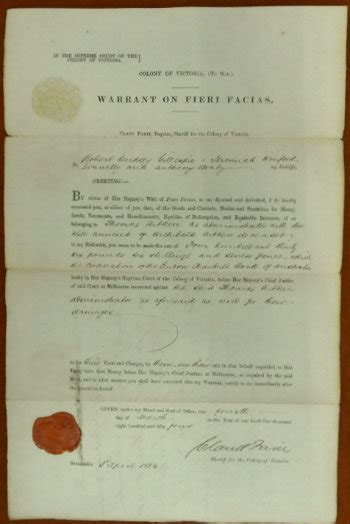 IN THE SUPREME COURT OF THE
COLONY OF VICTORIA.
COLONY OF VICTORIA, (TO WIT.)
WARRANT ON FIERI FACIAS.
CLAUD FARIE, Esquire, Sheriff for the Colony of Victoria
To Robert Gillespie Jeremiah
Connelly and Anthony Brady my Bailiffs,
GREETING:—
BY virtue of Her Majesty's Writ of Fieri Facias, to me directed and delivered, I do hereby
command you, or either of you, that, of the Goods and Chattels, Monies and Securities for Money,
Lands, Tenements, and Hereditaments, Equities of Redemption, and Equitable Interests, of or
belonging to Thomas Aitken as administrator with the
Will annexed of Archibald Aitken deceased
in my Bailiwick, you cause to be made the sum of Four hundred and thirty
six pounds six shillings and seven pence, which
the corporation of the London Chartered Bank of Australia
lately in Her Majesty's Supreme Court of the Colony of Victoria, before Her Majesty's Chief Justice
of said Court at Melbourne recovered against the said Thomas Aitken
administrator as aforesaid as well for their
damages
Costs and Charges, by them in that behalf expended, so that
I may have that Money before Her Majesty's Chief Justice, at Melbourne, as required by the said
Writ, and in what manner you shall have executed this my Warrant, certify to me immediately after the
execution hereof.
GIVEN under my Hand and Seal of Office, this fourth
day of March in the Year of our Lord One thousand
eight hundred and fifty four
Claud Farie
Sheriff for the Colony of Victoria.
Returnable 5 April 1854